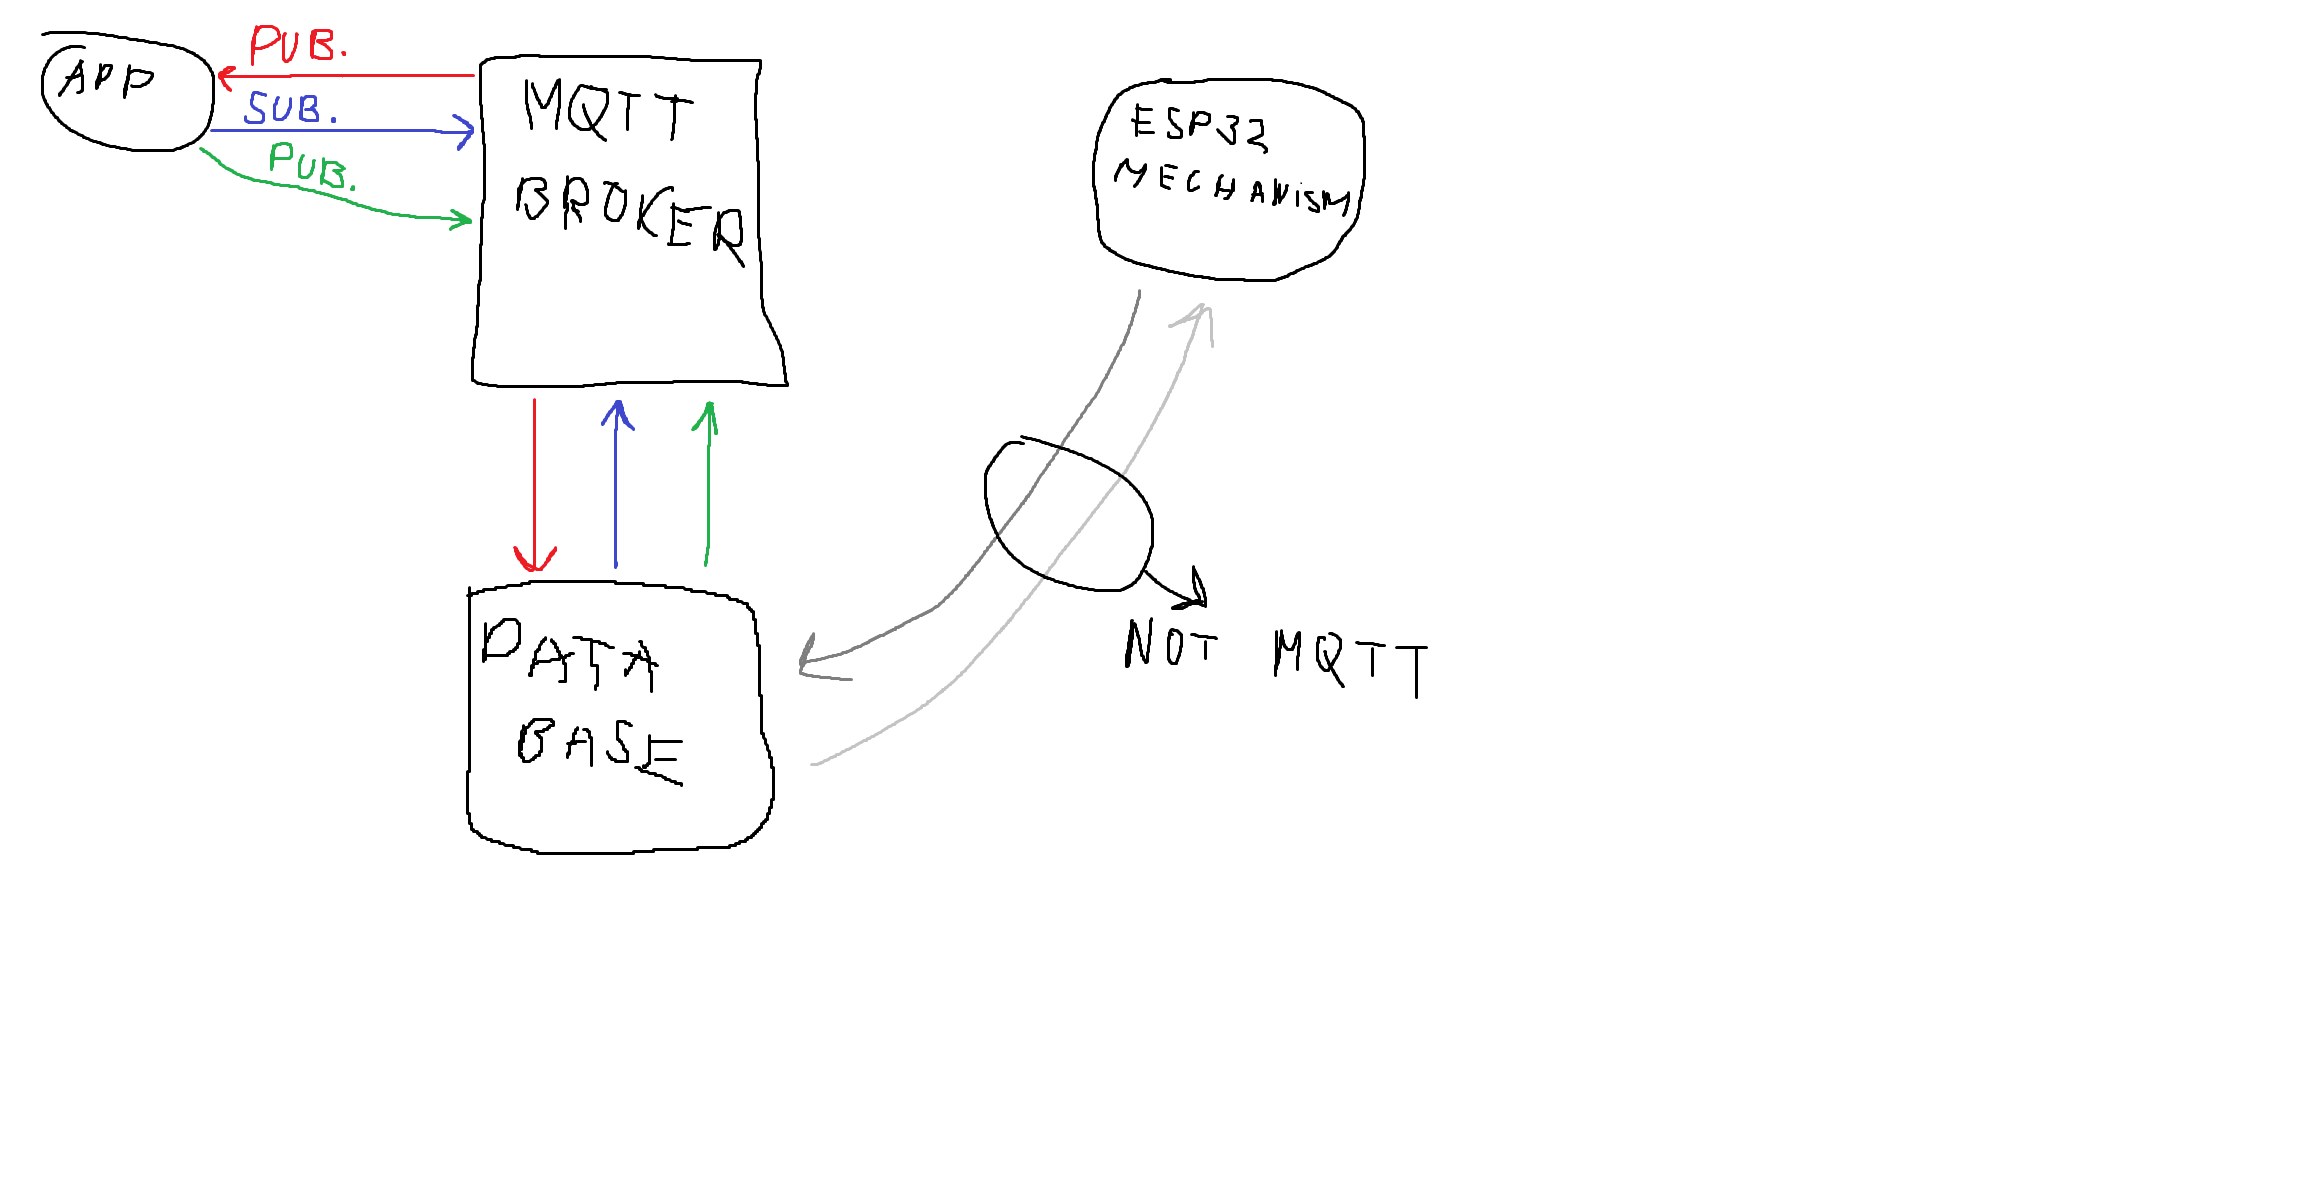 APP
PUB.
SUB.
PUB.
MQTT
BROKER
ESP32
MECHANiSM
DATA
BASE
NOT MQTT